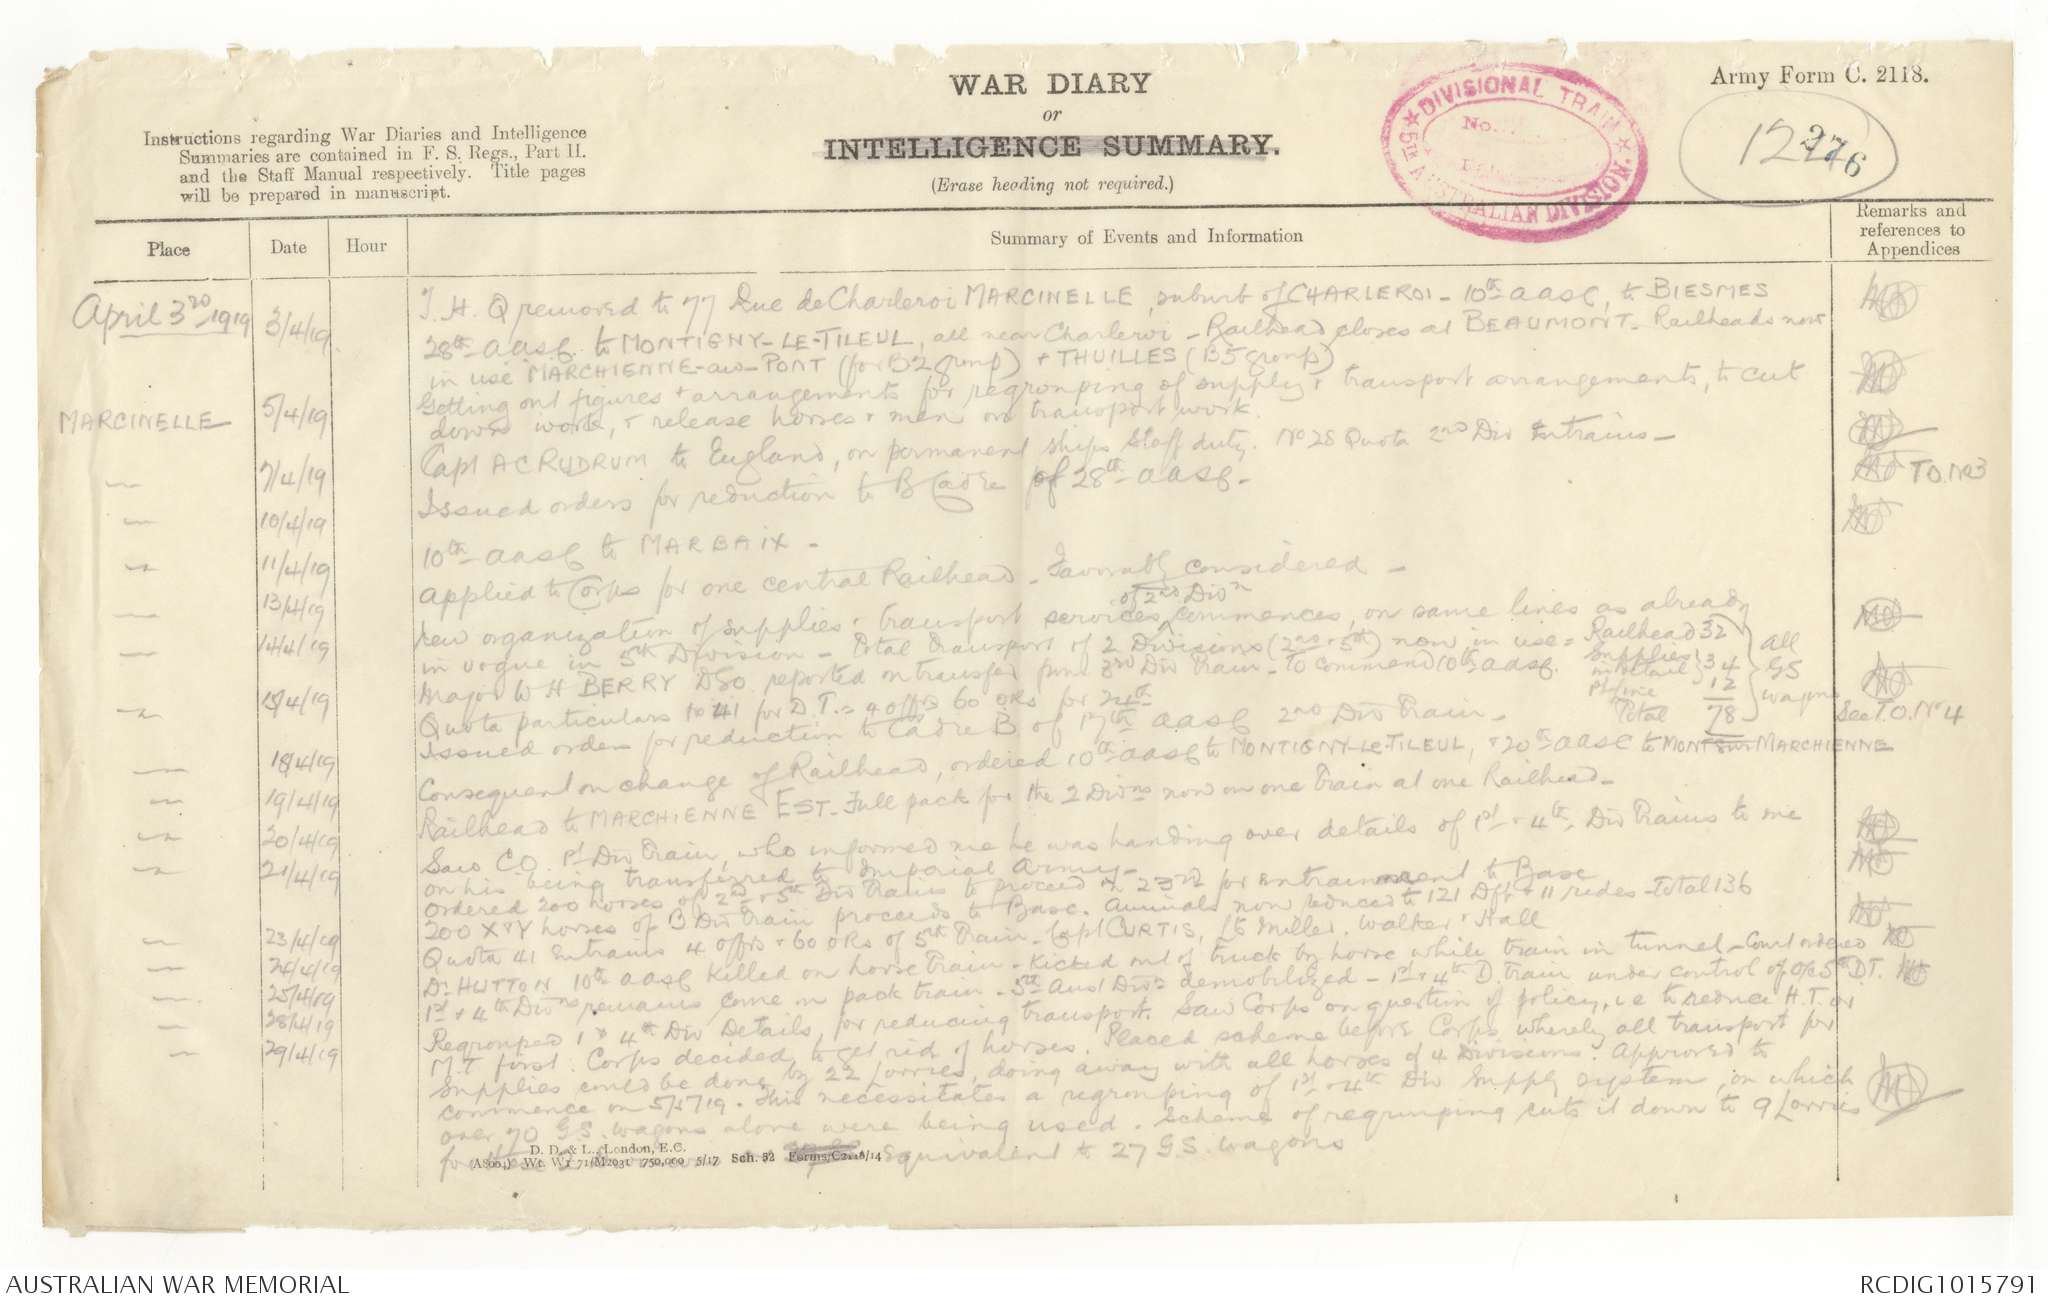 WAR DIARY
or
INTELLIGENCE SUMMARY.
(Erase heading not required.)
Army Form C. 2118.
Instructions regarding War Diaries and Intelligence
Summaries are contained in F. S. Regs., Part II.
and the Staff Manual respectively. Title pages
will be prepared in manuscript.
★ DIVISIONAL TRAIN ★
5TH AUSTRALIAN DIVISION.
No.
Place
Date
Hour
Summary of Events and Information
Remarks and
references to
Appendices
April 3rd 1919
3/4/19
T.H.Q removed to 77 Rue de Charleroi MARCINELLE, suburb of CHARLEROI - 10th AASC, to BIESMES
28th AASC to MONTIGNY-LE-TILEUL, all near Charleroi - Railhead closes at BEAUMONT - Railheads now
in use MARCHIENNE-au-PONT (for B2 group) + THUILLES (B5 group)
MARCINELLE
5/4/19
Getting out figures + arrangements for regrouping of supply + transport arrangements, to cut
down work, + release horses + men on transport work.
7/4/19
Capt A C RUDRUM to England, on permanent ships Staff duty. No 28 Quota 2nd Div Entrains -
Issued orders for reduction to B Cadre of 28th AASC -
T.O. No 3
10/4/19
10th AASC to MARBAIX -
11/4/19
Applied to Corps for one central Railhead - Favorably considered -
13/4/19
of 2nd Divn
New organization of supplies + transport services commences, on same lines as already
in vogue in 5th Division - Total transport of 2 Divisions (2nd + 5th) now in use =
Railhead 32
Supplies in detail 34
12
Total 78
all GS wagons
14/4/19
Major W H BERRY DSO reported on transfer from 3rd Div Train - to command 10th AASC.
Quota particulars No 41 for D.T. = 4 offrs 60 ORs for 24th
15/4/19
Issued orders for reduction to Cadre B of 17th AASC 2nd Div Train -
See T.O. No 4
18/4/19
Consequent on change of Railhead, ordered 10th AASC to MONTIGNY-LE-TILEUL, + 20th AASC to MONT sur MARCHIENNE
19/4/19
Railhead to MARCHIENNE EST - Full pack for the 2 Divns now on one train at one Railhead -
20/4/19
Saw CO 1st Div Train, who informed me he was handing over details of 1st + 4th Div Trains to me
on his being transferred to Imperial Army -
21/4/19
Ordered 200 horses of 2nd + 5th Div Trains to proceed on 23rd for entrainment to Base
200 X+Y horses of B Div Train proceeds to Base. Animals now reduced to 121 Dft + 11 rides - Total 136
23/4/19
Quota 41 Entrains 4 offrs + 60 ORs of 5th Train - Capt CURTIS, Lts Miller, Walker + Hall
24/4/19
Dr HUTTON 10th AASC Killed on horse train - Kicked out of truck by horse while train in tunnel - Court ordered
25/4/19
1st + 4th Divns remains come on pack train - 3rd Aust Divn demobilized - 1st + 4th D. train under control of O/C 5th D.T.
28/4/19
Regrouped 1 + 4th Div Details, for reducing transport. Saw Corps on question of policy, i.e to reduce H.T. or
M.T first. Corps decided to get rid of horses. Placed scheme before Corps whereby all transport for
29/4/19
supplies could be done by 22 Lorries, doing away with all horses of 4 Divisions. Approved to
commence on 5/5/19. This necessitates a regrouping of 1st + 4th Div Supply system, on which
over 70 G.S. wagons alone were being used. Scheme of regrouping cuts it down to 9 Lorries
Equivalent to 27 G.S. wagons
D. D. & L., London, E.C.
(A8004) Wt. W1771/M2031 750,000 5/17 Sch. 52 Forms/C2118/14
AUSTRALIAN WAR MEMORIAL
RCDIG1015791